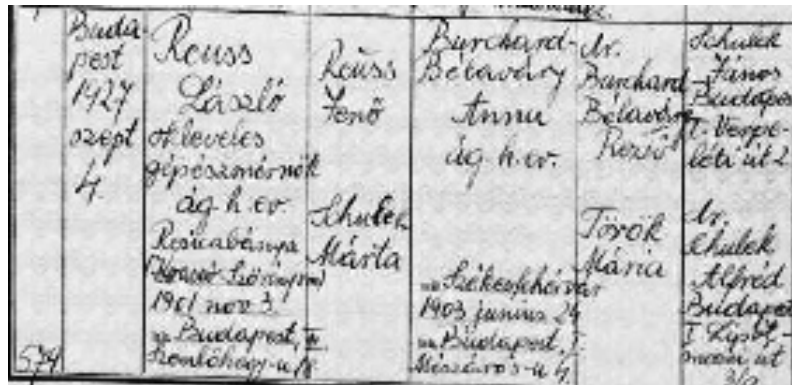 Buda-
pest
1927
szept
4.
574
Reuss
László
okleveles
gépészmérnök
ág. h. ev.
Resicabánya
1901 nov 3.
Budapest, II.
Somlóhegy-u.
Reuss
Jenő
Schulek
Márta
Burchard-
Bélaváry
Anna
ág. h. ev.
Székesfehérvár
1903 junius 24
Budapest, I.
Mészáros-u. 4.
dr.
Burchard
Bélaváry
Rezső
Török
Mária
Schulek
János
Budapest
I. Verpe-
léti út 2
dr.
Schulek
Alfréd
Budapest
I.
út